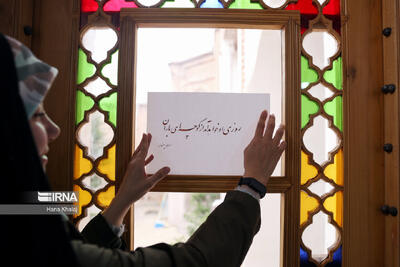 روزی او خواهد آمد از کوچه‌های باران
IRNA
Hana Fathi